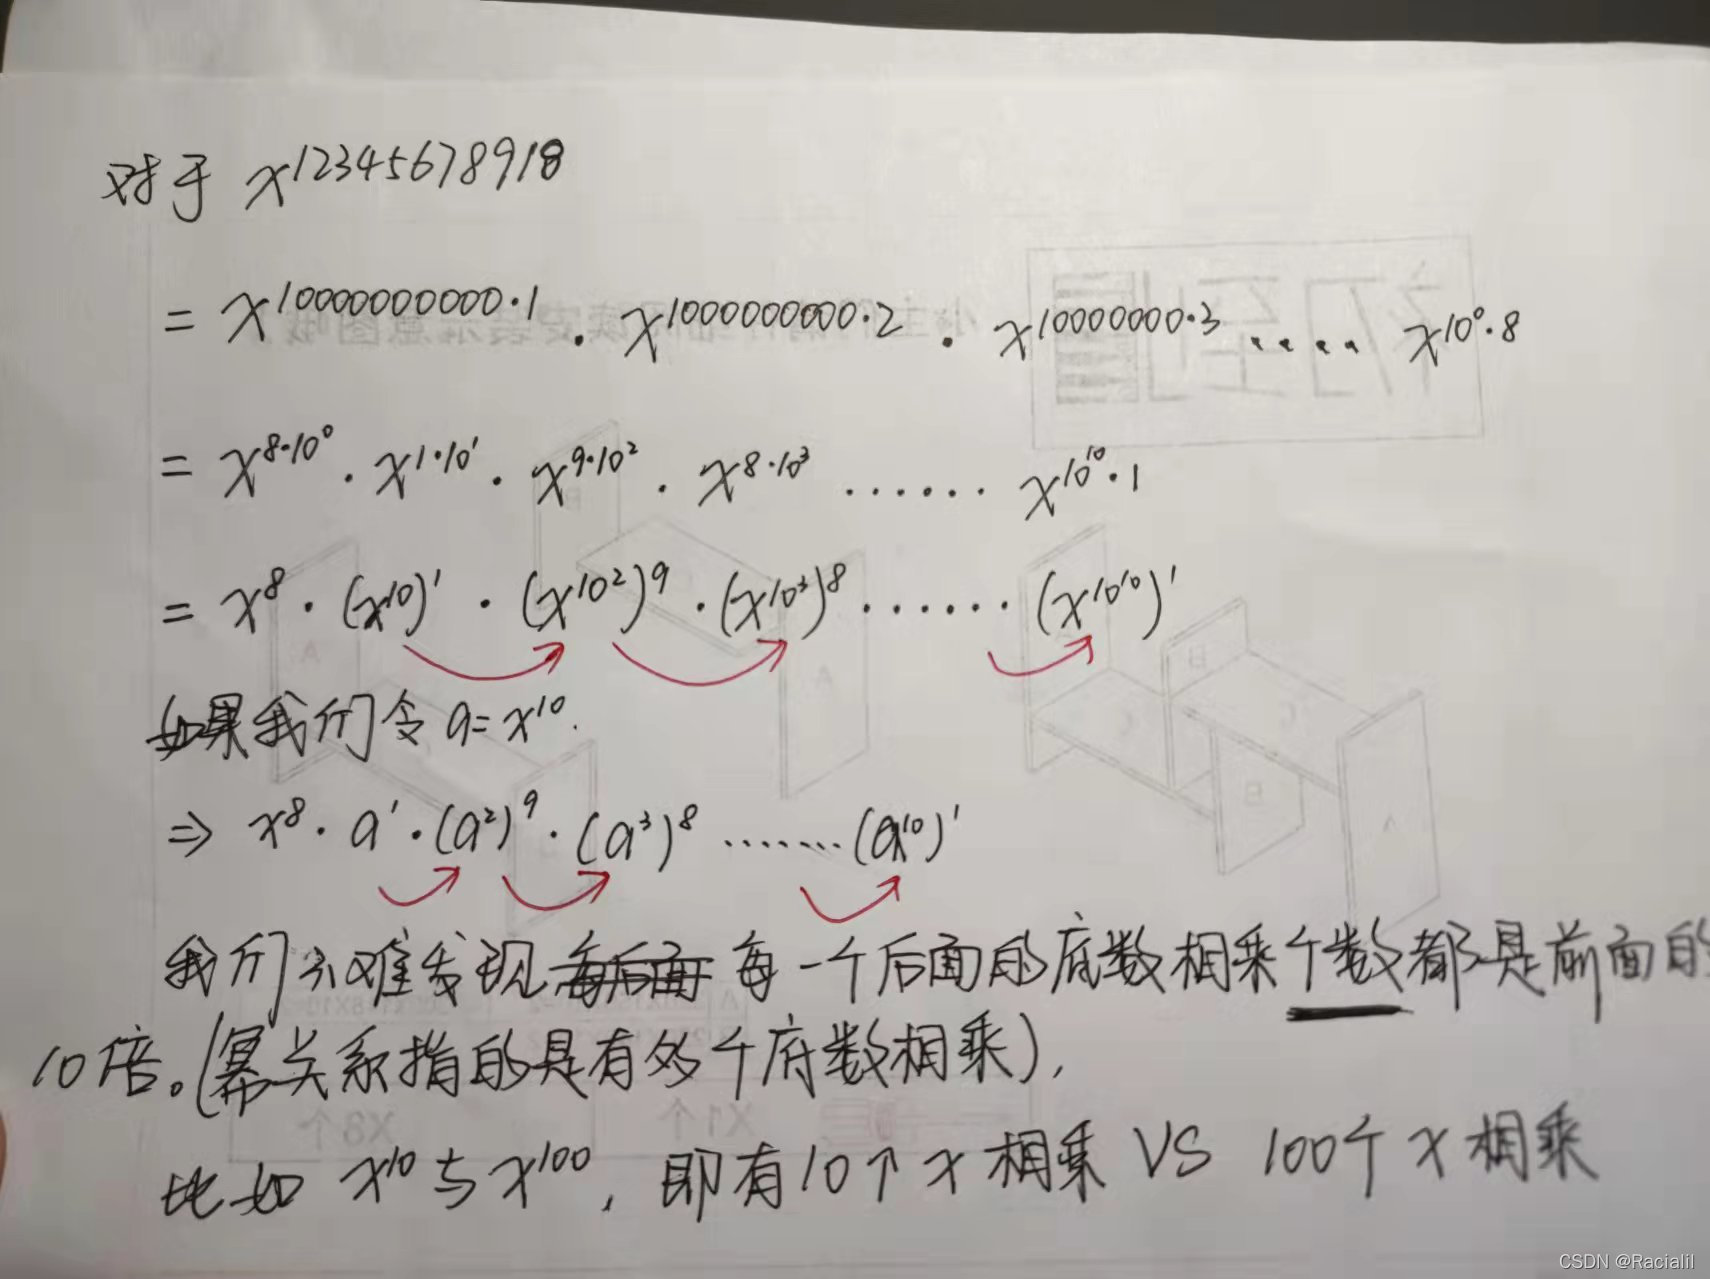 对于 x^12345678918
= x^10000000000·1 · x^1000000000·2 · x^10000000·3 ···· x^10^0·8
= x^8·10^0 · x^1·10^1 · x^9·10^2 · x^8·10^3 ······ x^10^10·1
= x^8 · (x^10)^1 · (x^10^2)^9 · (x^10^3)^8 ······ (x^10^10)^1
如果我们令 a=x^10.
⇒ x^8 · a^1 · (a^2)^9 · (a^3)^8 ······· (a^10)^1
我们不难发现 每一个后面的底数相乘个数都是前面的
10倍。(幂关系指的是有多个底数相乘),
比如 x^10与x^100, 即有10个x相乘 VS 100个x相乘
CSDN @Racialil